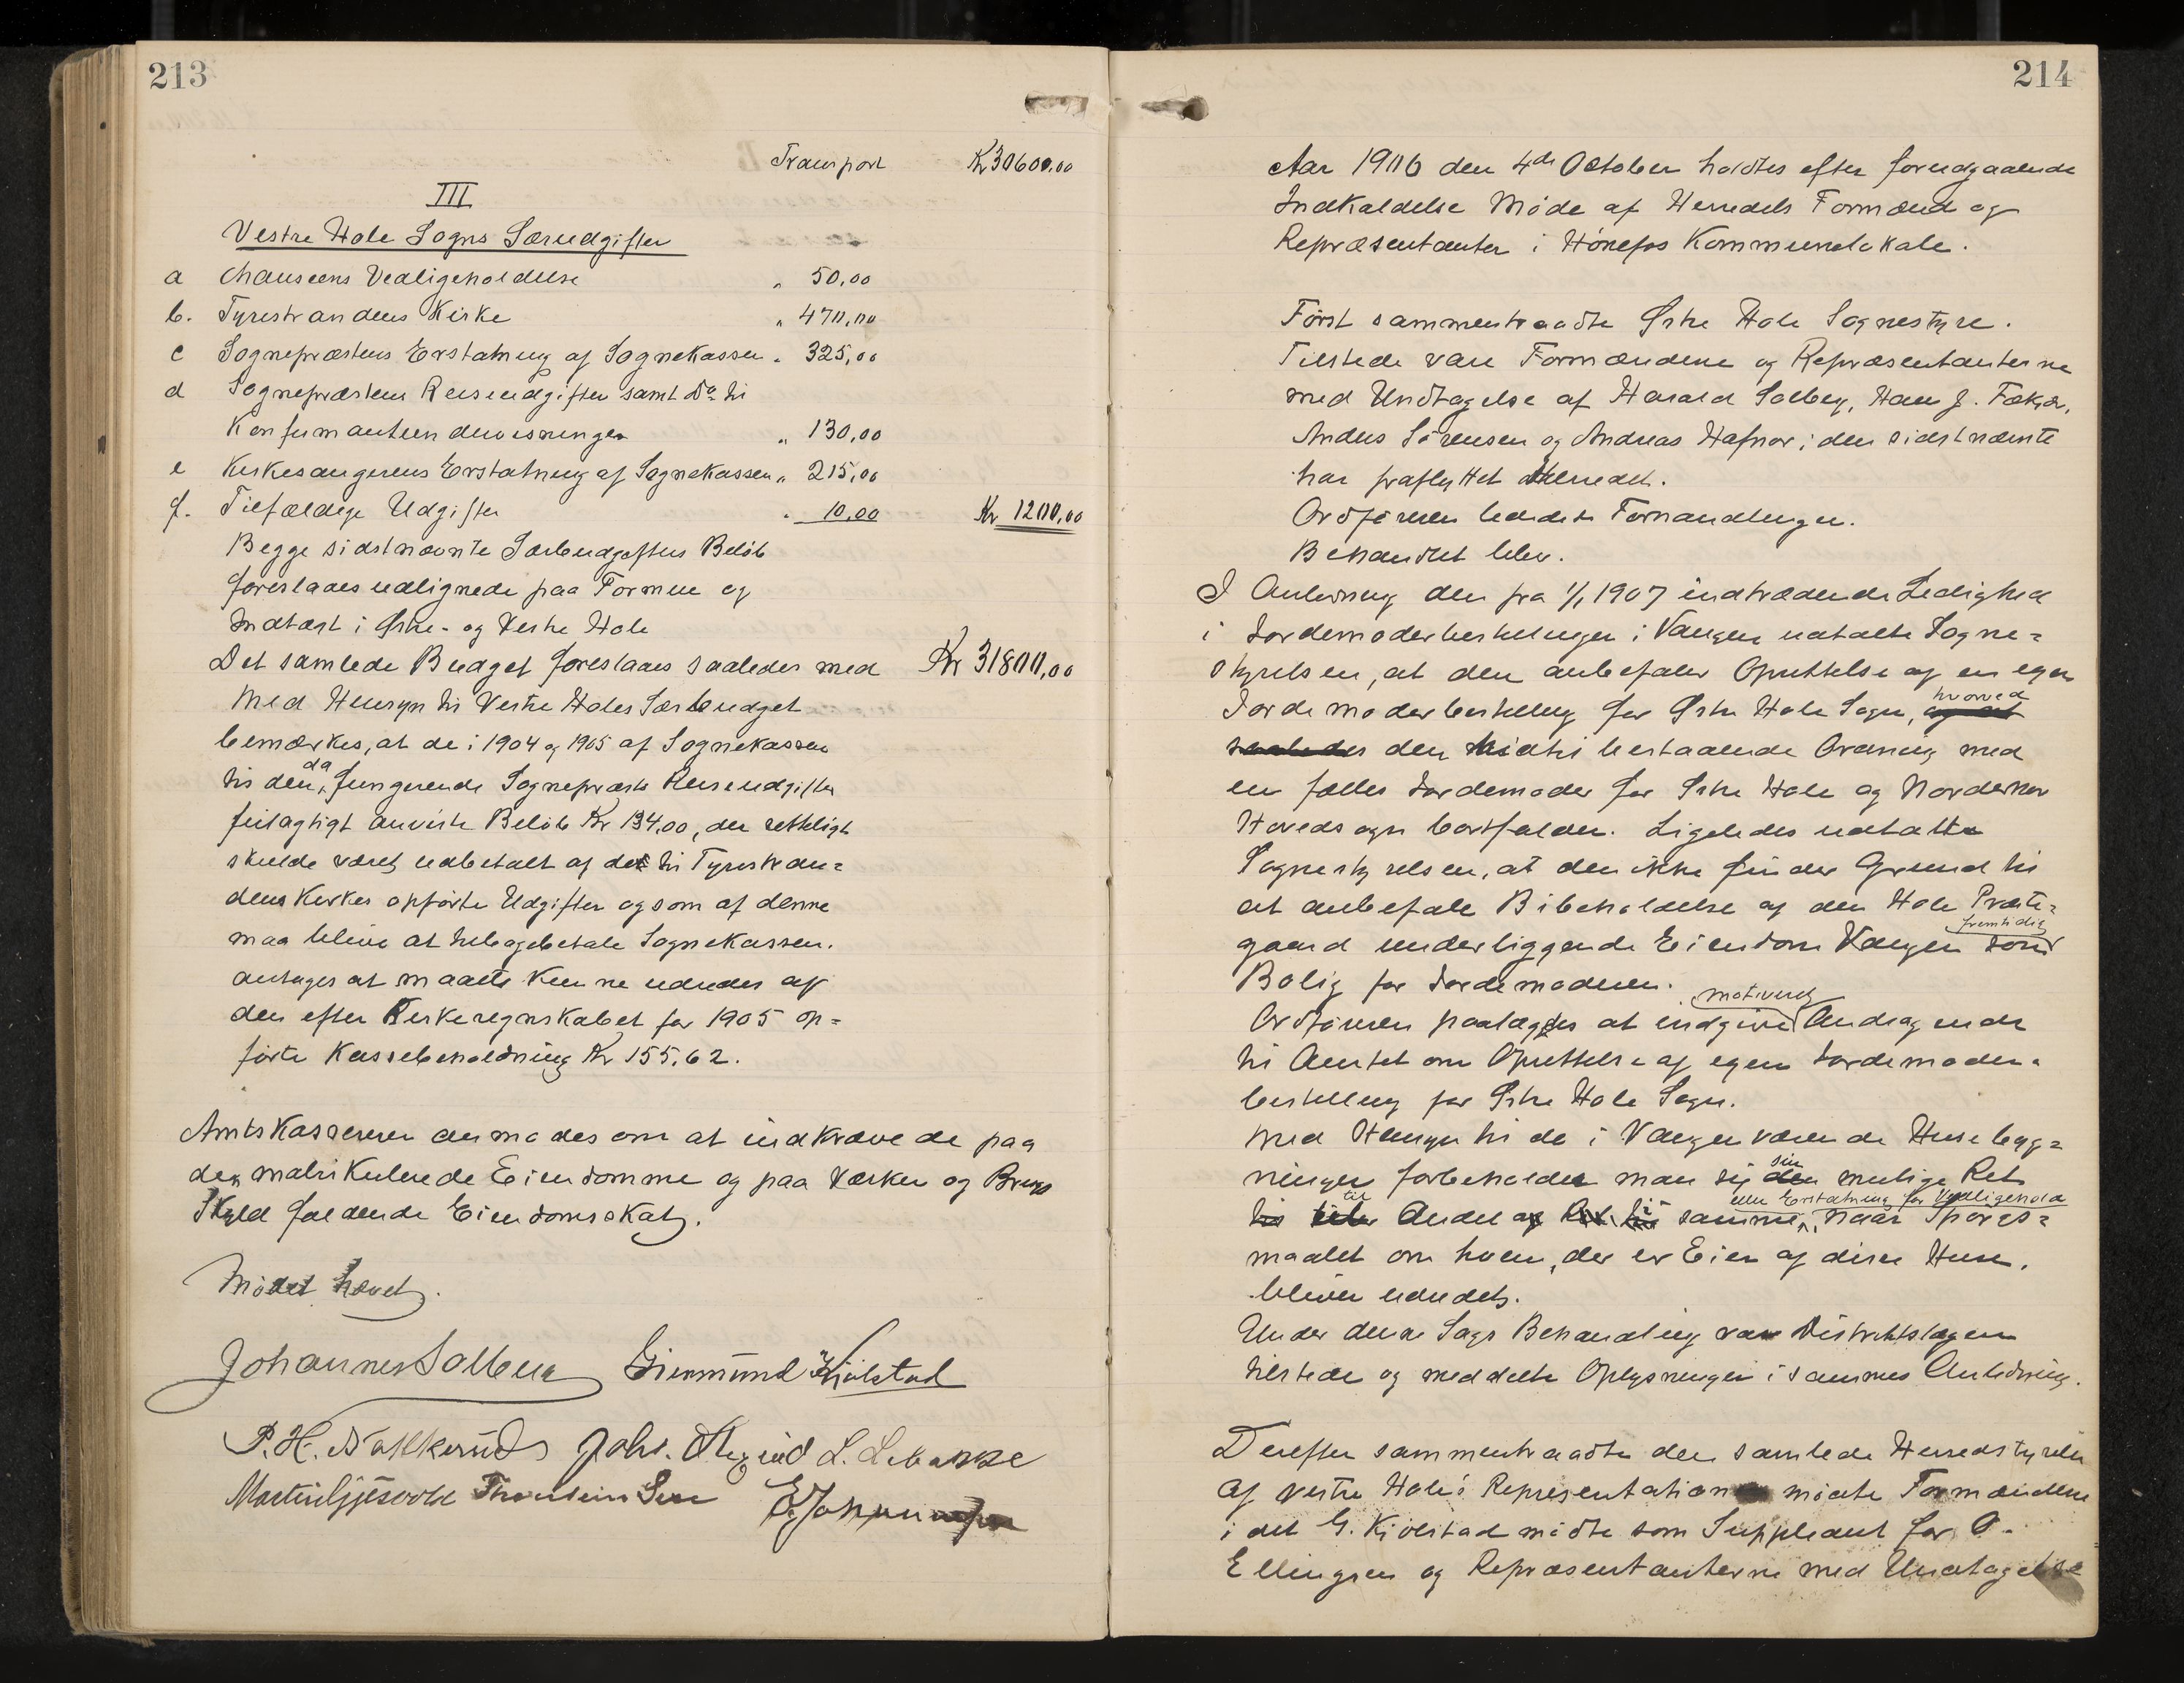 213
Transport Kr 30600.00
III
Vestre Hole Sogns Særudgifter
a Chauseens Vedligeholdelse " 50,00
b. Tyrestrandens Kirke " 470,00
c Sogneprestens Erstatning af Sognekassen " 325,00
d Sogneprestens Reiseudgifter samt Do til
Konfirmantundervisningen " 130,00
e Kirkesangerens Erstatning af Sognekassen " 215,00
f. Tilfældige Udgifter " 10.00 Kr 1200,00
Begge sidstnævnte Særbudgetters Beløb
foreslaaes udlignede paa Formue og
Indtægt i Østre- og Vestre Hole
Det samlede Budget foreslaaes saaledes med Kr 31800,00
Med Hensyn til Vestre Holes Særbudget
bemærkes, at de i 1904 og 1905 af Sognekassen
til den da fungerende Sogneprests Reiseudgifter
feilagtigt anviste Beløb Kr 134.00, der retteligt
skulde været udbetalt af det til Tyrestran=
dens Kirkes opførte Udgifter og som af denne
maa blive at tilbagebetale Sognekassen.
antages at maatte kunne udredes af
den efter Kirkeregnskabet for 1905 op=
førte Kassebeholdning Kr 155.62.
Amtskassereren anmodes om at indkræve de paa
de matrikulerede Eiendomme og paa Værker og Brugs
Skyld faldende Eiendomsskat.
Mødet hævet.
Johannes Solberg Giermund Kjølstad
P. H. Johs. L.
Martin Gjesvold E. Johannesen
214
Aar 1906 den 4de October holdtes efter forudgaaende
Indkaldelse Møde af Herredets Formænd og
Repræsentanter i Hønefos Kommunelokale.
Først sammentraadte Østre Hole Sognestyre.
Tilstede vare Formændene og Repræsentanterne
med Undtagelse af Harald Solberg, Hans J. Fekjær,
Anders Sørensen og Andreas Hafnor; den sidstnævnte
har fraflyttet Herredet.
Ordføreren ledede Forhandlingen.
Behandlet blev.
I Anledning den fra 1/1 1907 indtrædende Ledighed
i Jordemoderbestillingen i Vangen udtalte Sogne=
styrelsen, at den anbefaler Oprettelse af en egen
Jordemoderbestilling for Østre Hole Sogn, og at hvorved
saaledes den hidtil bestaaende Ordning med
en fælles Jordemoder for Østre Hole og Norderhov
Hovedsogn bortfalder. Ligeledes udtalte
Sognestyrelsen, at den ikke finder Grund til
at anbefale Bibeholdelse af den Hole Præste=
gaard underliggende Eiendom Vangen som fremtidig
Bolig for Jordemoderen.
Ordføreren paalægges at indgive motiveret Andragende
til Amtet om Oprettelse af egen Jordemoder=
bestilling for Østre Hole Sogn.
Med Hensyn til de i Vangen værende Husebyg=
ninger forbeholder man sig den sin mulige Ret
til eller Andel af Ret til i samme, eller Erstatning for Vedligehold naar Spørgs=
maalet om hvem, der er Eier af disse Huse,
bliver udredet.
Under denne Sags Behandling var Distriktslægen
tilstede og meddelte Oplysninger i sammes Anledning.
Derefter sammentraadte den samlede Herredsstyrelse
Af Vestre Holes Representation mødte Formændene
idet G. Kjölstad mødte som Suppleant for O.
Ellingsen og Repræsentanterne med Undtagelse